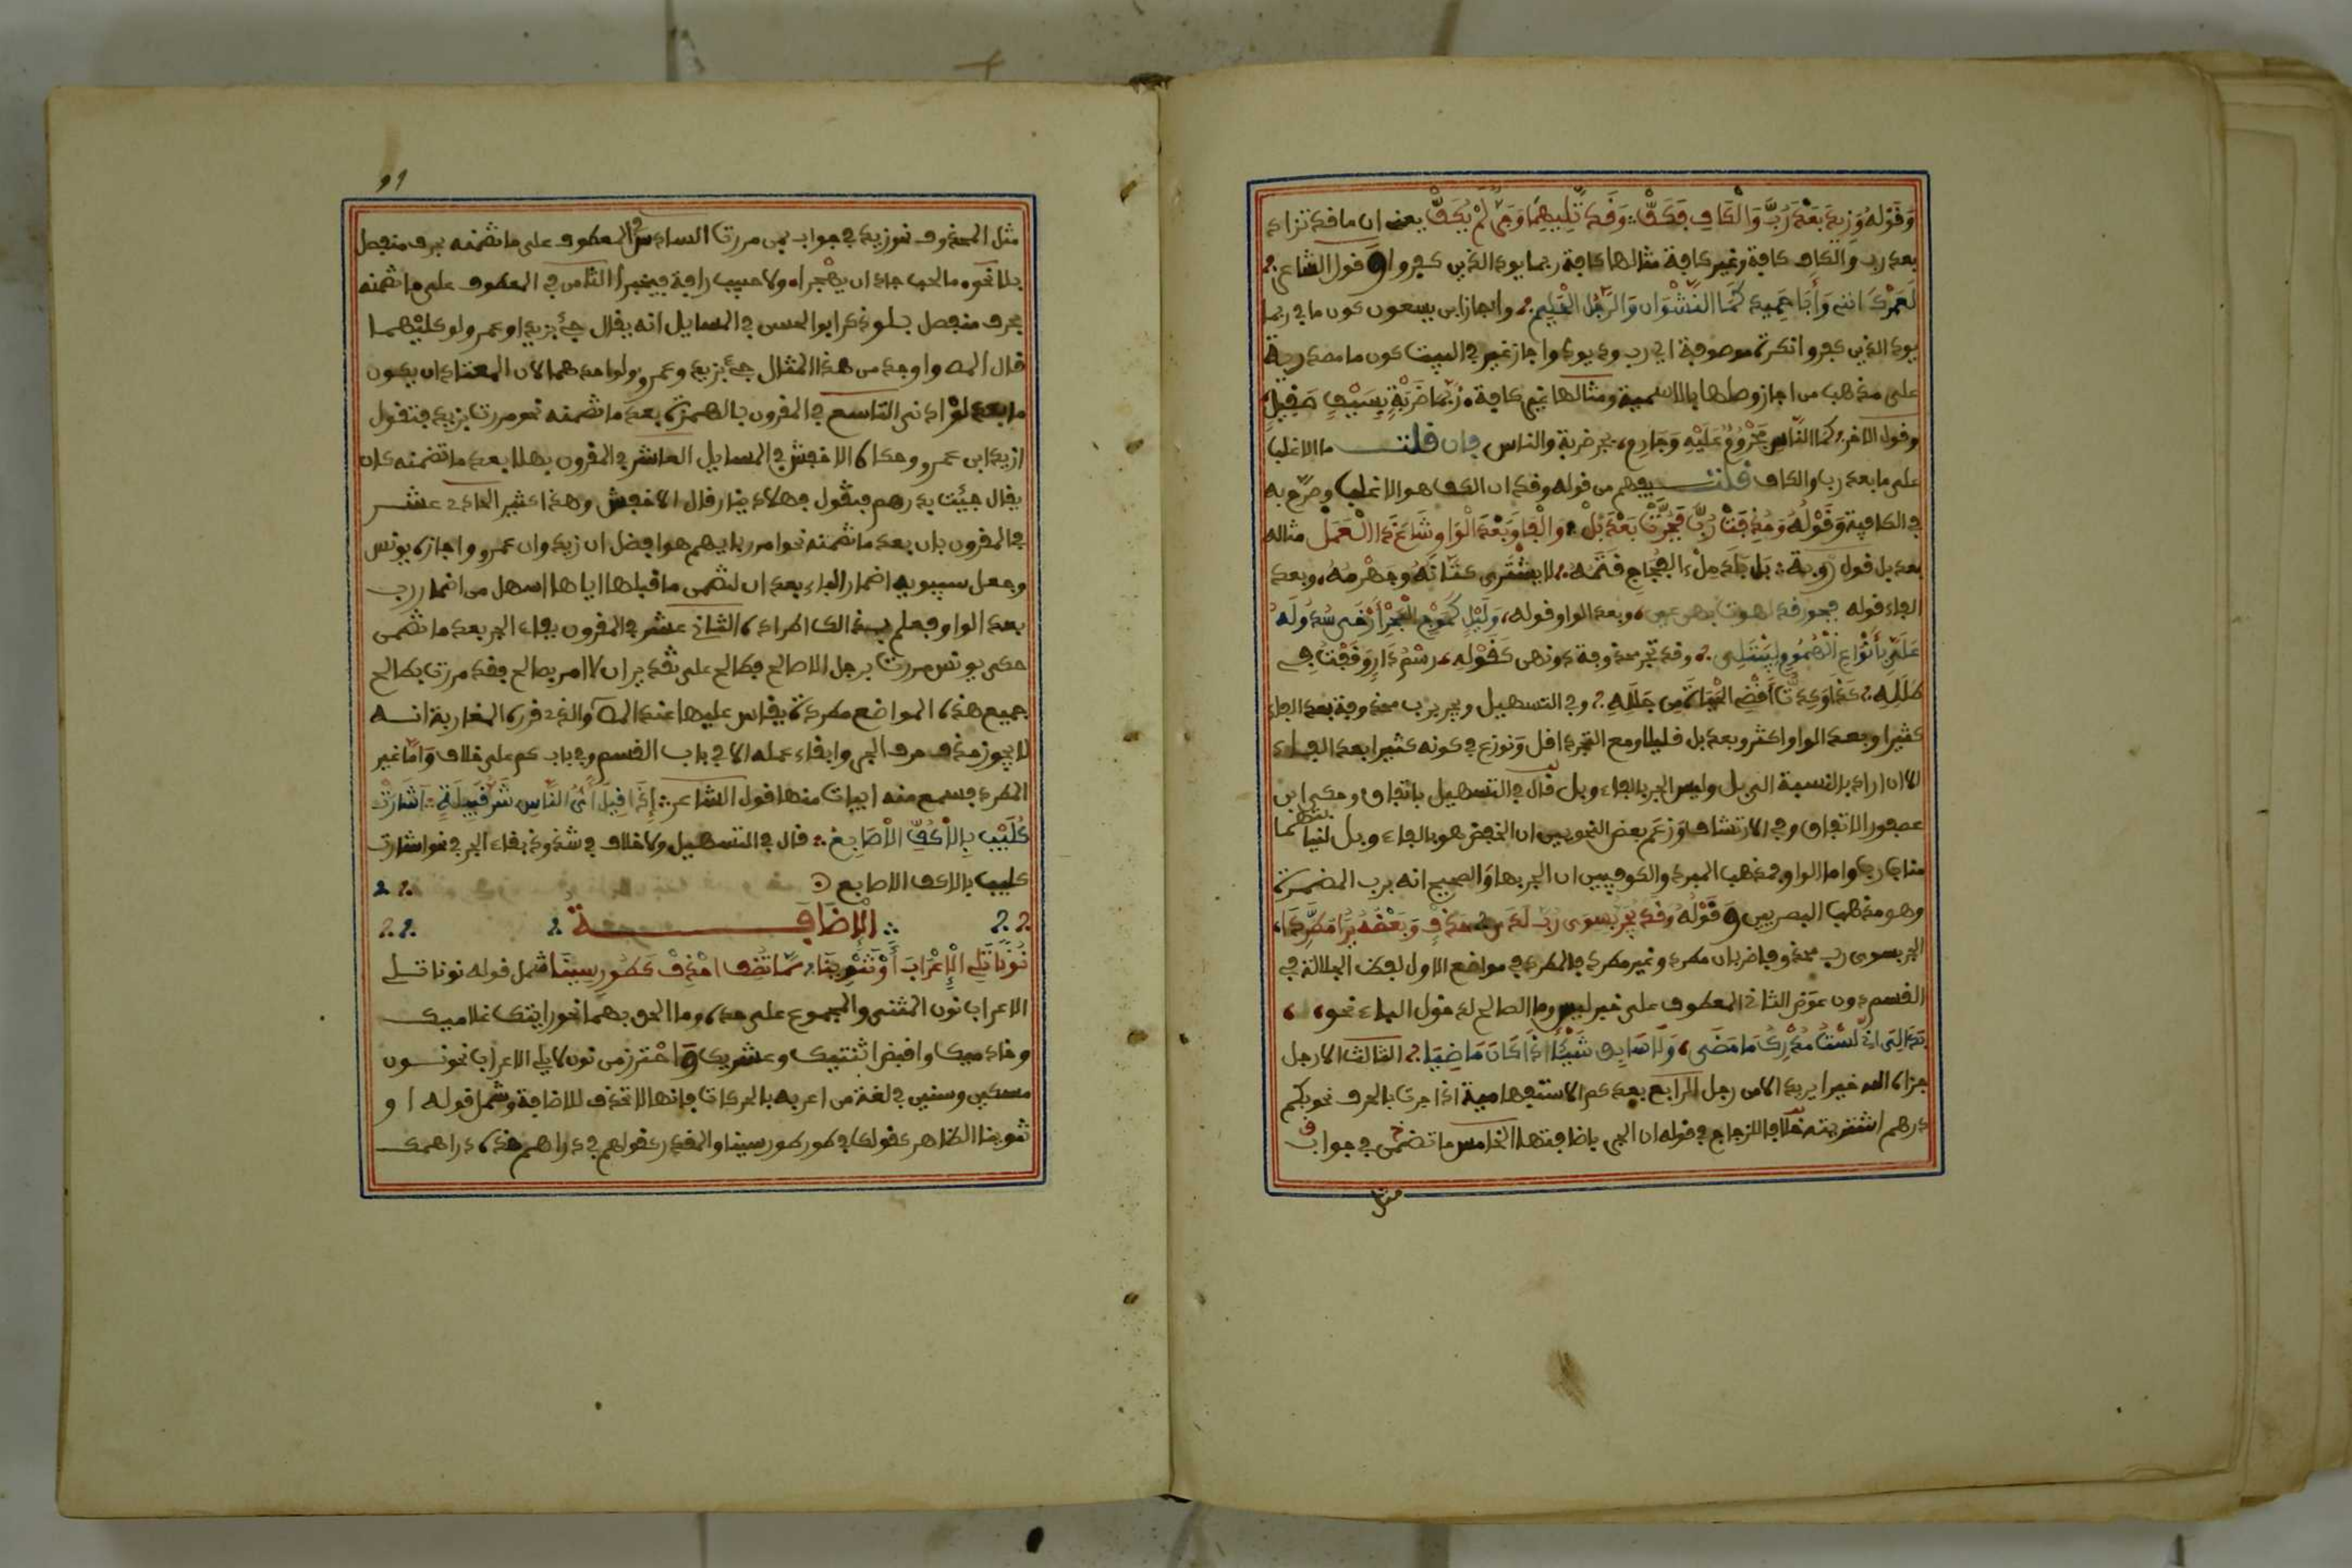 وَقَوْلُهُ وَزِيدَ بَعْدَ رُبَّ وَالْكَافِ فَكَفّْ وَقَدْ تَلِيهِمَا وَجَرٌّ لَمْ يُكَفّْ يعنى ان ما قد تزاد
بعد رب والكاف كافة وغير كافة مثالها كافة ربما يود الذين كفروا وقول الشاعر
لَعَمْرُكَ اننى وَأَبَا حَمِيد كَمَا النَّشْوَان وَالرَّجُل الْحَلِيم واجاز ابن يسعون كون ما فى ربما
يود الذين كفروا نكرة موصوفة اى رب ود يود واجاز غير فى البيت كون ما مصدرية
على مذهب من اجاز وصلها بالاسمية ومثالها غير كافة رُبَّمَا ضَرْبَةٍ بِسَيْفٍ صَقِيلٍ
وقول الاخر كَمَا النَّاسِ مَجْرُومٌ عَلَيْهِ وَجَارِم بجر ضربة والناس فان قلت ما الاغلب
على ما بعد رب والكاف قلت يفهم من قوله وقد ان الكف هو الاغلب وصرح به
فى الكافية وَقَوْلُهُ وَحُذِفَتْ رُبَّ فَجَرَّتْ بَعْدَ بَلْ وَالْفَا وَبَعْدَ الْوَاوِ شَاعَ ذَا الْعَمَلْ مثاله
بعد بل قول روبة بَل بَلَدٍ مِلْء الفِجَاجِ قَتَمُه لا يشْتَرى كَتَّانُهُ وَجَهْرَمُه وبعد
الفاء قوله فحور قد لهوت بهن عين وبعد الواو قوله وَلَيْلٍ كَمَوْجِ الْبَحْرِ أَرْخَى سُدُولَهُ
عَلَىَّ بِأَنْوَاعِ الْهُمُومِ لِيَبْتَلِى وقد تجر محذوفة دونهن كَقَوْلِهِ رَسْمِ دَارٍ وَقَفْتُ فِى
طَلَلِهِ كدت أَقْضِى الْحَيَاةَ مِن جَلَلِهِ وفى التسهيل ويجر برب محذوفة بعد الفاء
كثيرا وبعد الواو اكثر وبعد بل قليلا ومع التجرد اقل ونوزع فى كونه كثيرا بعد الفاء
الا ان اراد بالنسبة الى بل وليس الجر بالفاء وبل قال فى التسهيل باتفاق وحكى ابن
عصفور الاتفاق وفى الارتشاف وزعم بعض النحويين ان الخفض هو بالفاء وبل لنيابتهما
مناب رب واما الواو فمذهب المبرد والكوفيين ان الجر بها والصحيح انه برب المضمرة
وهو مذهب البصريين وَقَوْلُهُ وَقَدْ يُجَرُّ بِسِوَى رُبَّ لَدَى حَذْفٍ وَبَعْضُهُ يُرَى مُطَّرِدَا
الجر بسوى رب محذوفا ضربان مطرد وغير مطرد فالمطرد فى مواضع الاول لفظ الجلالة فى
القسم دون عوض الثانى المعطوف على خبر ليس وما الصالح لدخول الباء نحو
بَدَا لِىَ انى لَسْتُ مُدْرِكَ مَا مَضَى وَلَا سَابِقٍ شَيْئًا اذَا كَانَ جَاضِيَا الثالث الا رجل
جزاه الله خيرا يريد الا من رجل الرابع بعد كم الاستفهامية اذا جرت بالحرف نحو بكم
درهم اشتريته خلافا للزجاج فى قوله ان الجر باضافتها الخامس ما تضمن فى جواب
مثل
91
مثل المحذوف نحو زيد فى جواب بمن مررت السادس المعطوف على ما تضمنه بحرف متصل
بلا نحوه ما لمحب جلد ان يهجرا ولا حبيب رافة فيجبرا الثامن فى المعطوف على ما تضمنه
بحرف منفصل بلو ذكر ابو الحسن فى المسايل انه يقال جئ بزيد او عمرو ولو كليهما
قال المص واوجد من هذا المثال جئ بزيد وعمرو ولو احدهما لان المعتاد ان يكون
ما بعد لو ادنى التاسع فى المقرون بالهمزة بعد ما تضمنه نحو مررت بزيد فتقول
ازيد ابن عمرو وحكاه الاخفش فى المسايل العاشر فى المقرون بهلا بعد ما تضمنه كان
يقال جيئت بدرهم فيقول فهلا دينار قال الاخفش وهذا كثير الحادى عشر
فى المقرون بان بعد ما تضمنه نحو امرر بايهم هو افضل ان زيد وان عمرو واجازه يونس
وجعل سيبويه اضمار الباء بعد ان لتضمن ما قبلها اياها اسهل من اضمار رب
بعد الواو فعلم بذلك اطراده الثانى عشر فى المقرون بفاء الجر بعد ما تضمن
حكى يونس مررت برجل الا صالح فطالح على تقدير ان لا امر بصالح فقد مررت بطالح
جميع هذه المواضع مطردة يقاس عليها عند المص والذى قرره المغاربة انه
لا يجوز حذف حرف الجر وابقاء عمله الا فى باب القسم وفى باب كم على خلاف وَامَّا غير
المطرد فسمع منه ابيات منها قول الشاعر إِذَا قِيلَ أَىُّ النَّاسِ شَرُّ قَبِيلَةٍ أَشَارَتْ
كُلَيْبٍ بِالْأَكُفِّ الْأَصَابِعُ قال فى التسهيل ولا خلاف فى شذوذ بقاء الجر فى نحو اشارت
كليب بالاكف الاصابع
الْإِضَافَة
نُونًا تَلِى الْإِعْرَابَ أَوْ تَنْوِينَا مِمَّا تُضِفِ احْذِفْ كَطُورِ سِينَا شمل قوله نونا تلى
الاعراب نون المثنى والمجموع على حده وما الحق بهما نحو رايتك غلاميك
وخادميك واقبض اثنتيك وعشريك وَاحْترز من نون لا يلى الاعراب نحو نون
مسكين وسنين فى لغة من اعربه بالحركات فانها لا تحذف للاضافة وشمل قوله او
تنوينا الظاهر كقولك فى طور طور سينا والمقدر كقولهم فى دراهم هذه دراهمك